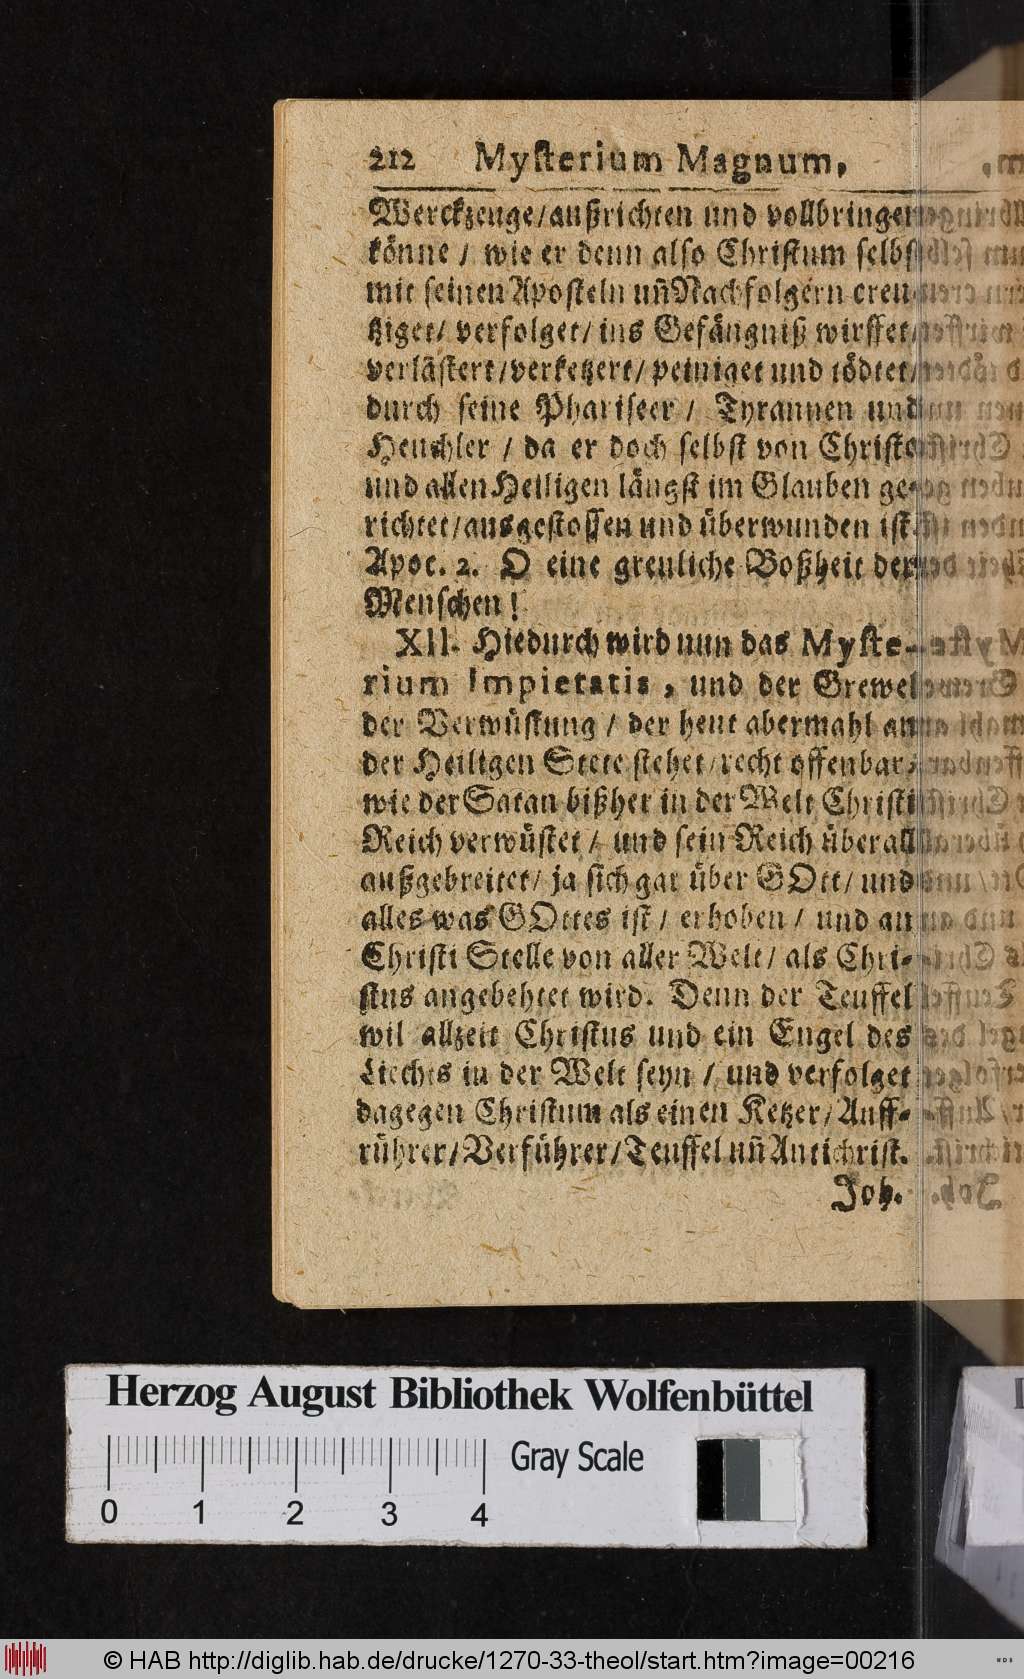 212 Mysterium Magnum,
Werckzeuge/außrichten und vollbringen
könne / wie er denn also Christum selbst
mit seinen Aposteln uñ Nachfolgern creu-
tziget/ verfolget/ ins Gefängniß wirffet/
verlästert/verketzert/ peiniget und tödtet/
durch seine Phariseer / Tyrannen und
Heuchler / da er doch selbst von Christo
und allen Heiligen längst im Glauben ge-
richtet/ausgestossen und überwunden ist.
Apoc. 2. O eine greuliche Boßheit der
Menschen!
XII. Hiedurch wird nun das Myste-
rium Impietatis, und der Grewel
der Verwüstung / der heut abermahl an
der Heiligen Stete stehet/recht offenbar,
wie der Satan bißher in der Welt Christi
Reich verwüstet / und sein Reich überall
außgebreitet/ ja sich gar über GOtt/ und
alles was GOttes ist / erhoben / und an
Christi Stelle von aller Welt/ als Chri-
stus angebehtet wird. Denn der Teuffel
wil allzeit Christus und ein Engel des
Liechts in der Welt seyn / und verfolget
dagegen Christum als einen Ketzer/Auff-
rührer/Verführer/Teuffel uñ Antichrist.
Joh.
Herzog August Bibliothek Wolfenbüttel
0 1 2 3 4 Gray Scale
© HAB http://diglib.hab.de/drucke/1270-33-theol/start.htm?image=00216